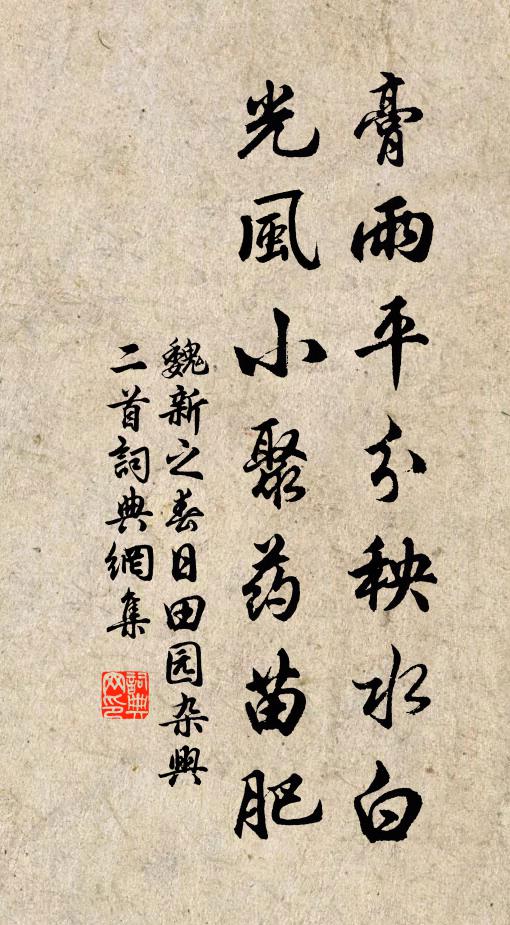 膏雨平分秧水白
光風小聚药苗肥
魏新之春日田园杂興
二首詞典網集
詞典网印